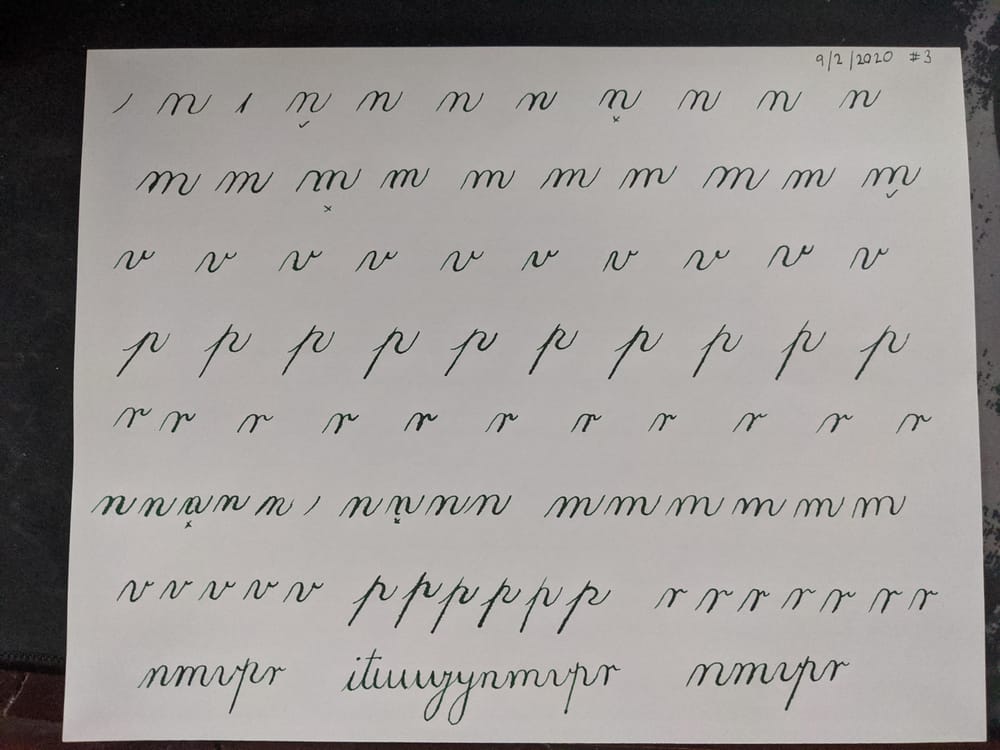 9/2/2020 #3
n n n n n n n n n
m m m m m m m m m m
v v v v v v v v v v
p p p p p p p p p p
r r r r r r r r r r r
n n n n n n n n n m m m m m m
v v v v v p p p p p p r r r r r r r
nmvpr ituwyynmvpr nmvpr